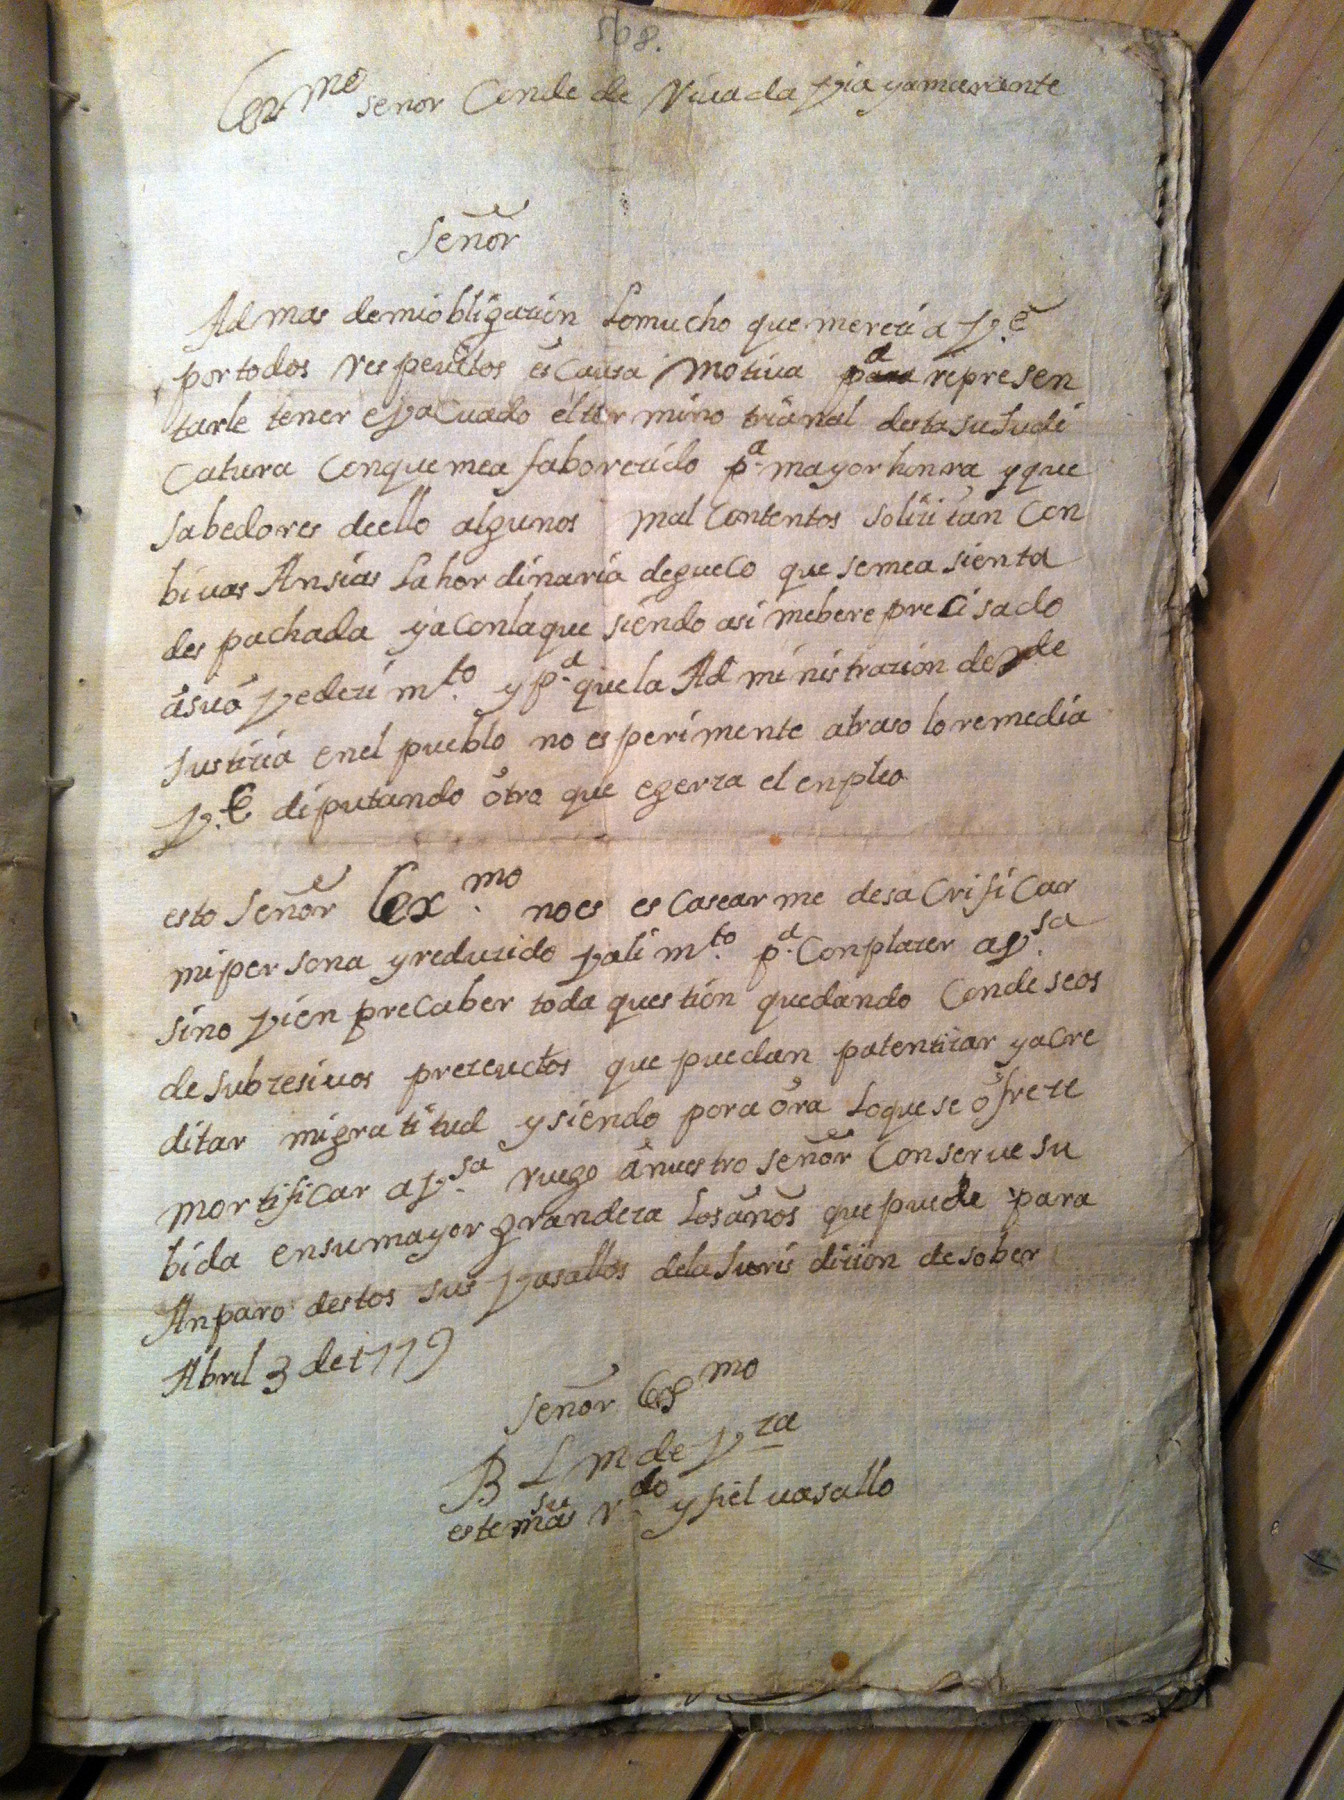 508.
Exmo señor Conde de Rivadavia y amarante
Señor
Ad mas de mi obligazion Lo mucho que merezi a V.e
por todos respeuctos es Causa motiva pa represen
tarle tener evacuado el termino trianal desta su Judi
Catura Con que me a faborezido pa mayor honra y que
sabedores de ello algunos mal Contentos solizitan Con
bivas Ansias La hordinaria de gueco que se me a sienta
des pachada y a Con la que siendo asi me bere precisado
á su ó vedezimto y pa que la Ad ministrazion de
Justizia en el pueblo no esperimente atraso lo remedia
V.E diputando ótro que egerza el enpleo
esto Señor Exmo no es es Casear me de sa Crifi Car
mi per sona y reduzido valimto pa Conplazer a V.sa
sino vien pre Caber toda ques tion quedando Con deseos
de subzesivos prezeuctos que puedan patentizar y a Cre
ditar mi gratitud y siendo por a óra Lo que se ófreze
mortificar a V.sa ruego á nuestro Señor Conserve su
bida en su mayor grandeza Los años que puede para
Anparo destos sus vasallos de la Juris dizion de sober
Abril 3 de 1779
Señor Exmo
B L M de V.za
este su mas r.do y fiel vasallo